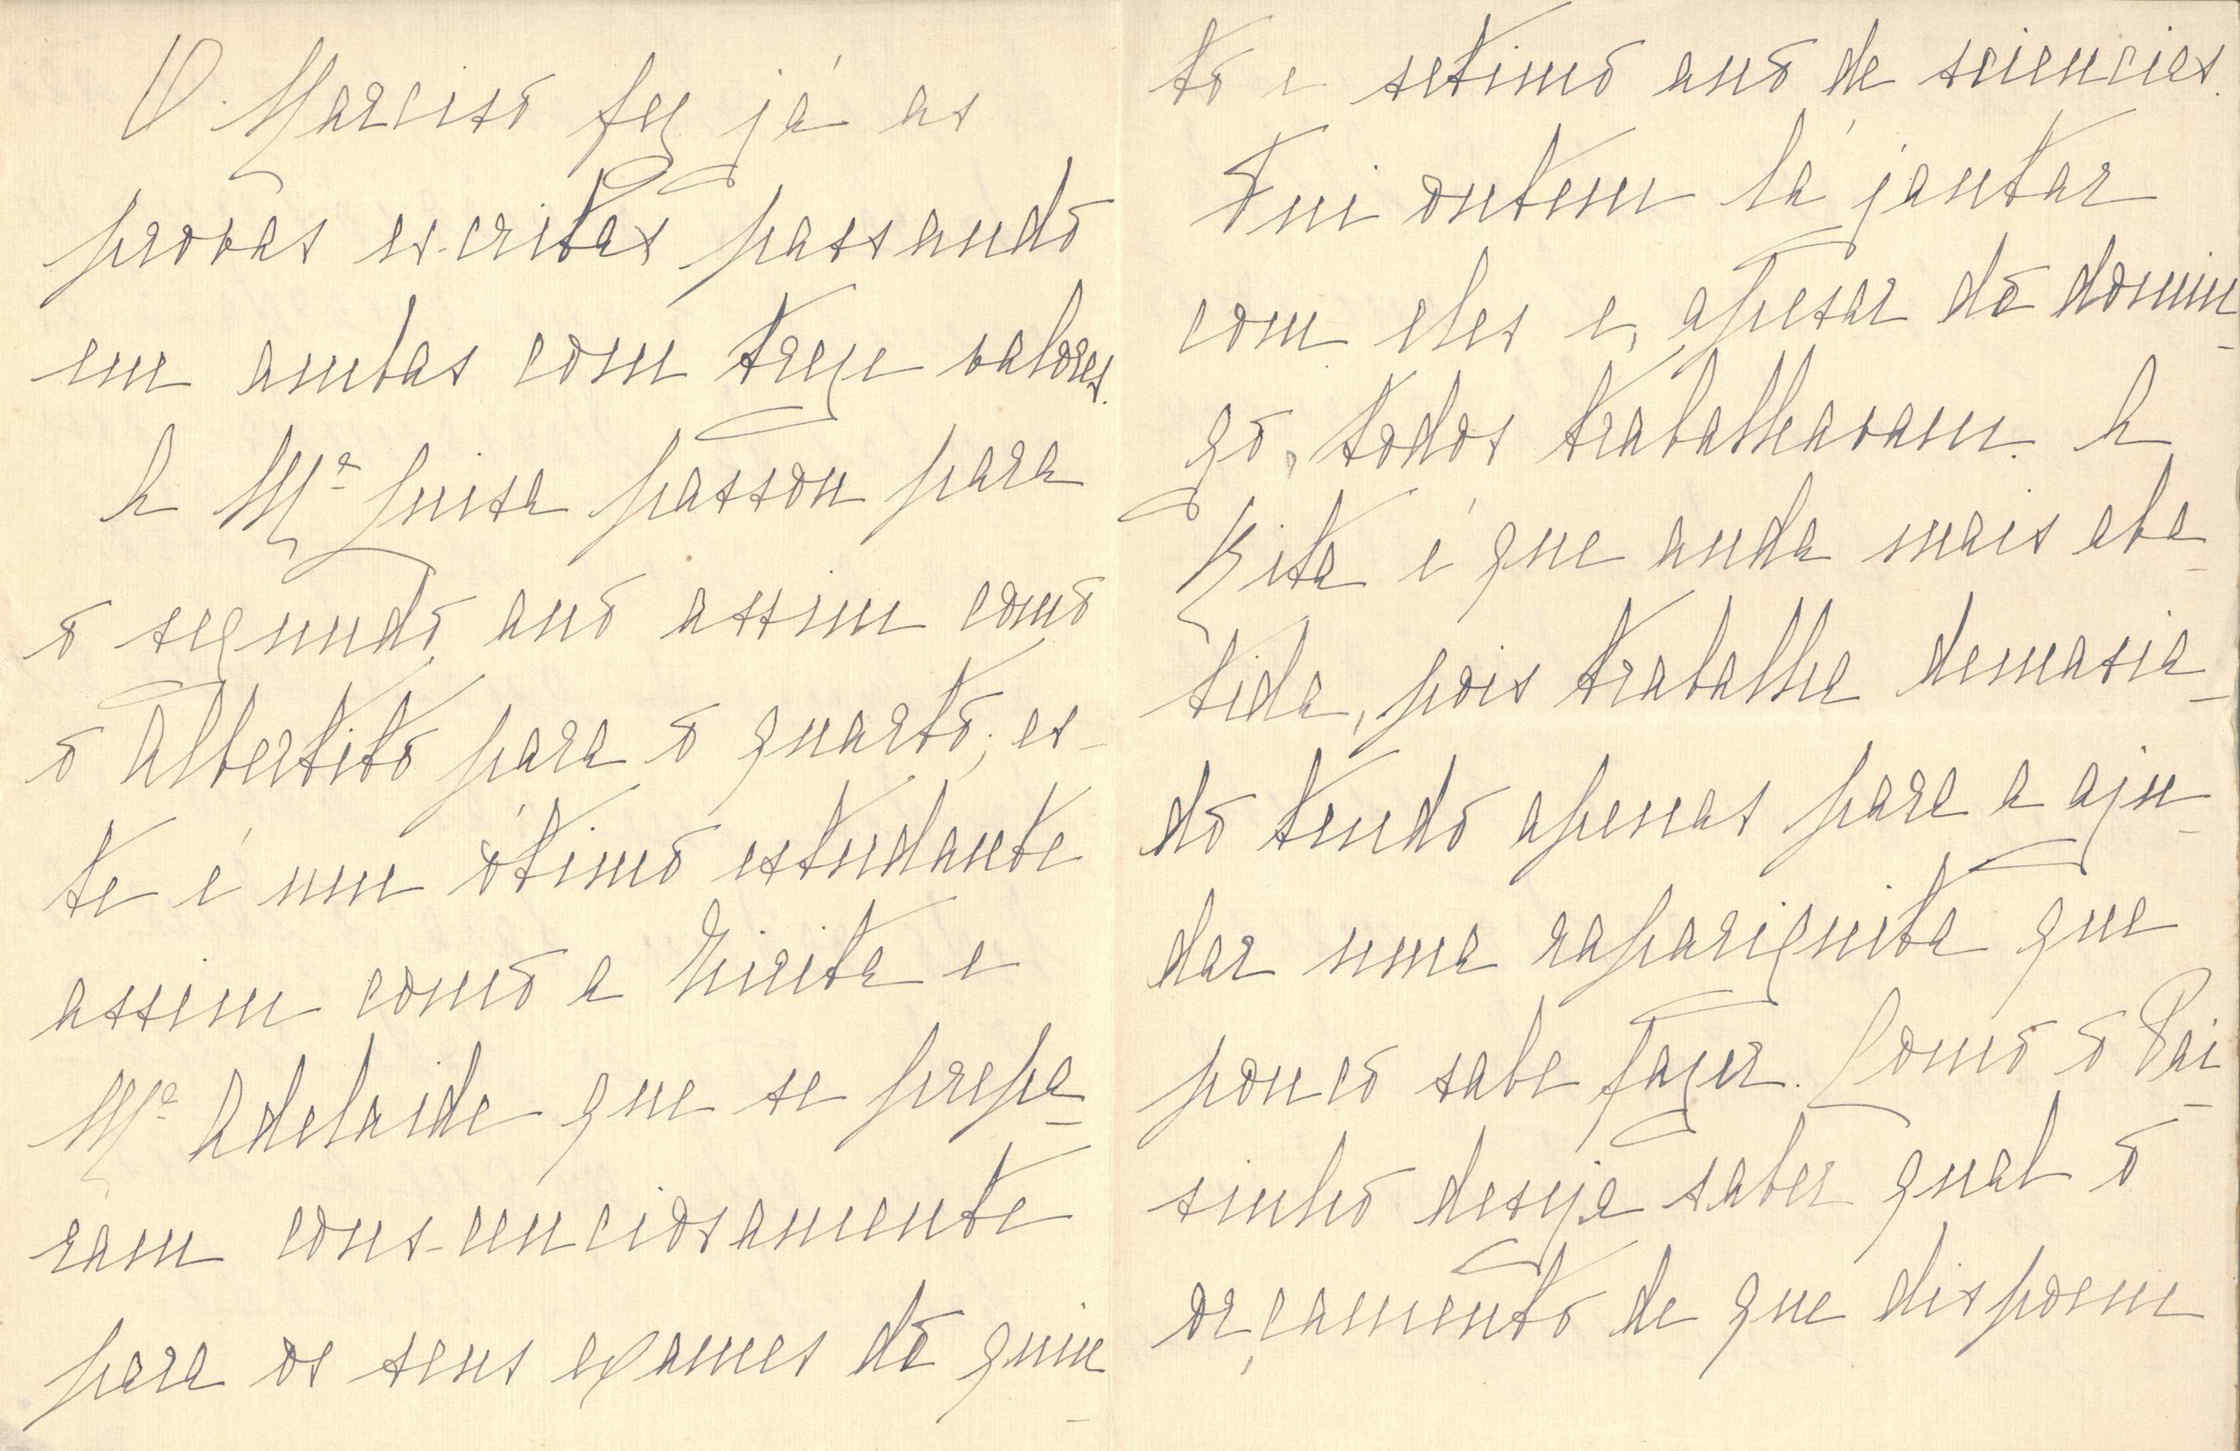 O Narciso fez já as
provas escritas passando
em ambas com treze valores.
A Mª Luisa passou para
o segundo ano assim como
o Albertito para o quarto; es-
te é um ótimo estudante
assim como a Mirita e
Mª Adelaide que se prepa-
ram conscenciosamente
para os seus exames do quin-
to e setimo ano de sciencias.
Fui ontem lá jantar
com eles e, apesar do domin-
go, todos trabalhavam. A
Rita é que anda mais aba-
tida, pois trabalha demasia-
do tendo apenas para a aju-
dar uma rapariguita que
pouco sabe fazer. Como o Pai-
sinho deseja saber qual o
orçamento de que dispoem